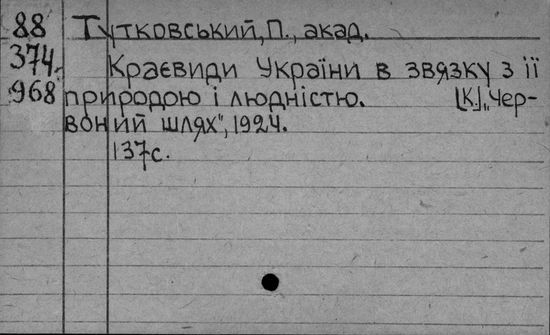 88 Тутковський, П., акад.
374. Краєвиди України в звязку з її
968 природою і людністю. [К.] „Чер-
воний шлях", 1924.
137с.